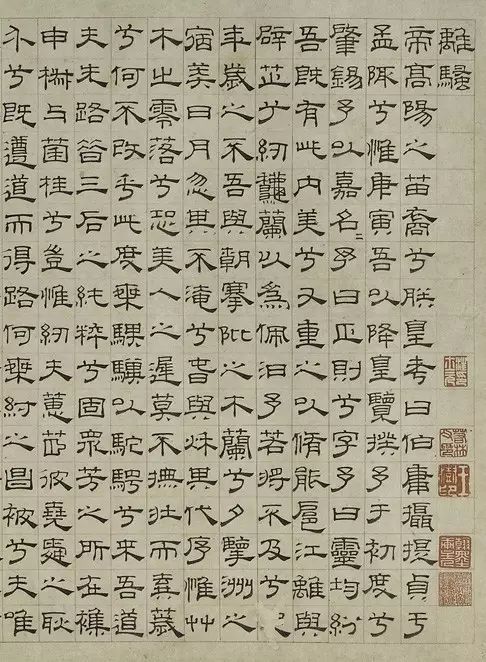 離騷
帝高陽之苗裔兮朕皇考曰伯庸攝提貞于
孟陬兮惟庚寅吾以降皇覽揆予于初度兮
肇錫予以嘉名〻予曰正則兮字予曰靈均紛
吾既有此內美兮又重之以脩能扈江離與
辟芷兮紉龝蘭以為佩汨予若將不及兮恐
年歲之不吾與朝搴阰之木蘭兮夕擥洲之
宿莽日月忽其不淹兮春與秌其代序惟艸
木之零落兮恐美人之遲莫不撫壯而棄薉
兮何不改乎此度乘騏驥以駝騁兮來吾道
夫先路昔三后之純粹兮固衆芳之所在襍
申椒与菌桂兮豈惟紉夫蕙茝彼堯舜之耿
介兮既遵道而得路何桀紂之昌被兮夫唯